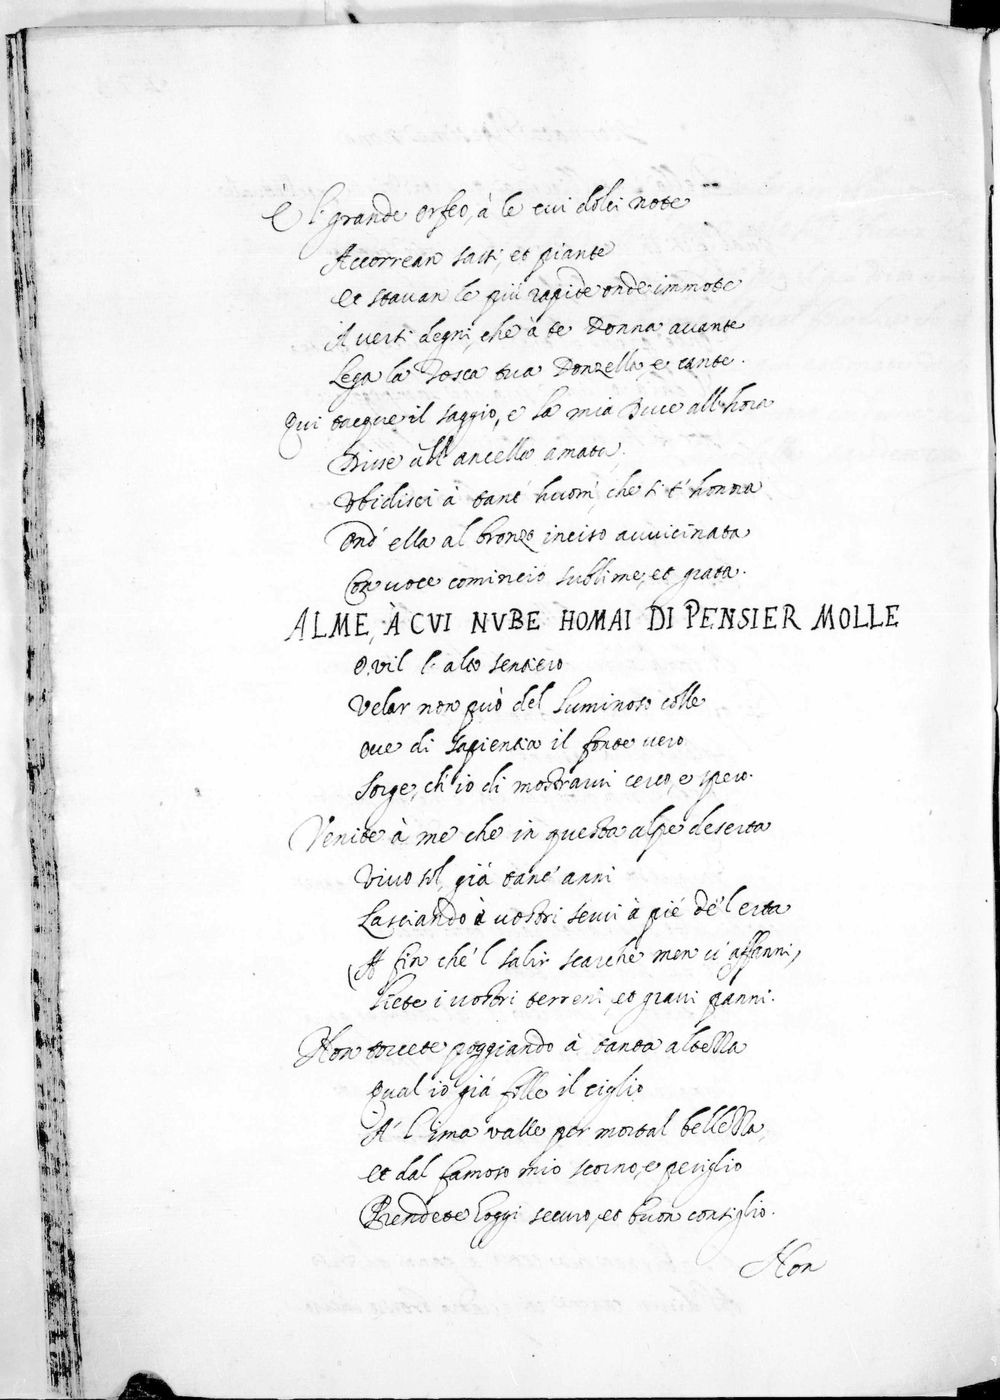 È l' grande Orfeo, à le cui dolci note
Accorrean sassi, et piante
Et stavan le più rapide onde immote
A versi degni, che à te Donna avante
Lega la Tosca tua Donzella, e cante.
Qui tacque il saggio, e la mia Duce all'hora
Disse all'ancella amata,
Obidisci à tant' huom, che si t'honora
Ond' ella al bronzo inciso avvicinata
Con voce cominciò sublime, et grata.
ALME, À CVI NVBE HOMAI DI PENSIER MOLLE
O, vil l' alto sentiero
Velar non può del luminoso colle
Ove di sapientia il fonte vero
Sorge, ch' io di mostrarvi cerco, e spero.
Venite à me che in questa alpe deserta
Vivo sol, già tant' anni
Lasciando i vostri sensi à piè de'l erta
(A fin che 'l salir scarchi men v' affanni,
Siete i vostri terreni, et gravi panni.
Non torcete poggiando à tanta altezza
Qual io già folle il ciglio
A' l' ima valle per mortal bellezza,
Et dal famoso mio scorno, e periglio
Prendete hoggi securo, et buon consiglio.
Non